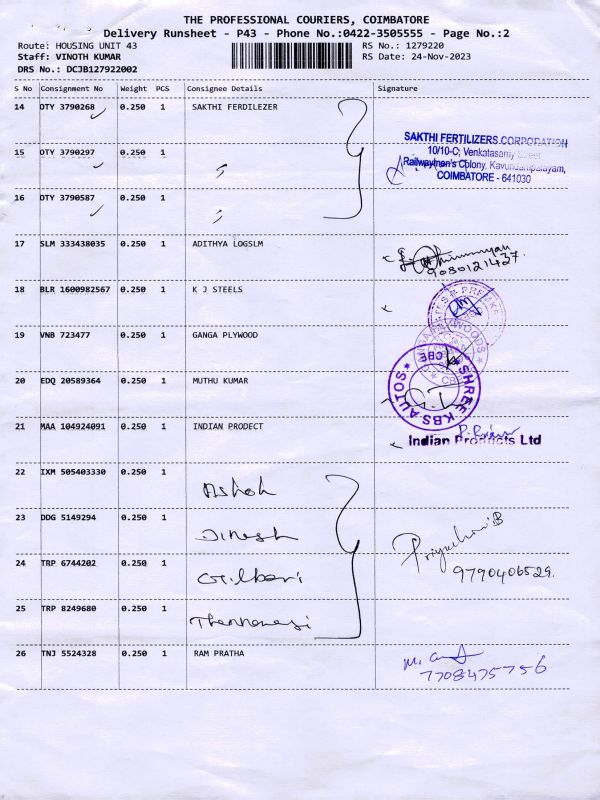 THE PROFESSIONAL COURIERS, COIMBATORE
Delivery Runsheet - P43 - Phone No.:0422-3505555 - Page No.:2
Route: HOUSING UNIT 43 RS No.: 1279220
Staff: VINOTH KUMAR RS Date: 24-Nov-2023
DRS No.: DCJB127922002
S No Consignment No Weight PCS Consignee Details Signature
14 OTY 3790268 0.250 1 SAKTHI FERDILEZER
SAKTHI FERTILIZERS CORPORATION
10/10-C, Venkatasamy Street
Railwaymen's Colony, Kavundampalayam,
COIMBATORE - 641030
15 OTY 3790297 0.250 1 "
16 OTY 3790587 0.250 1 "
17 SLM 333438035 0.250 1 ADITHYA LOGSLM
9080121427.
18 BLR 1600982567 0.250 1 K J STEELS
19 VNB 723477 0.250 1 GANGA PLYWOOD
20 EDQ 20589364 0.250 1 MUTHU KUMAR
SHREE KBS AUTOS
CBE
21 MAA 104924091 0.250 1 INDIAN PRODECT
Indian Products Ltd
22 IXM 505403330 0.250 1 Ashok
23 DDG 5149294 0.250 1 Dinesh
24 TRP 6744202 0.250 1
9790406529.
25 TRP 8249680 0.250 1
26 TNJ 5524328 0.250 1 RAM PRATHA
7708475756